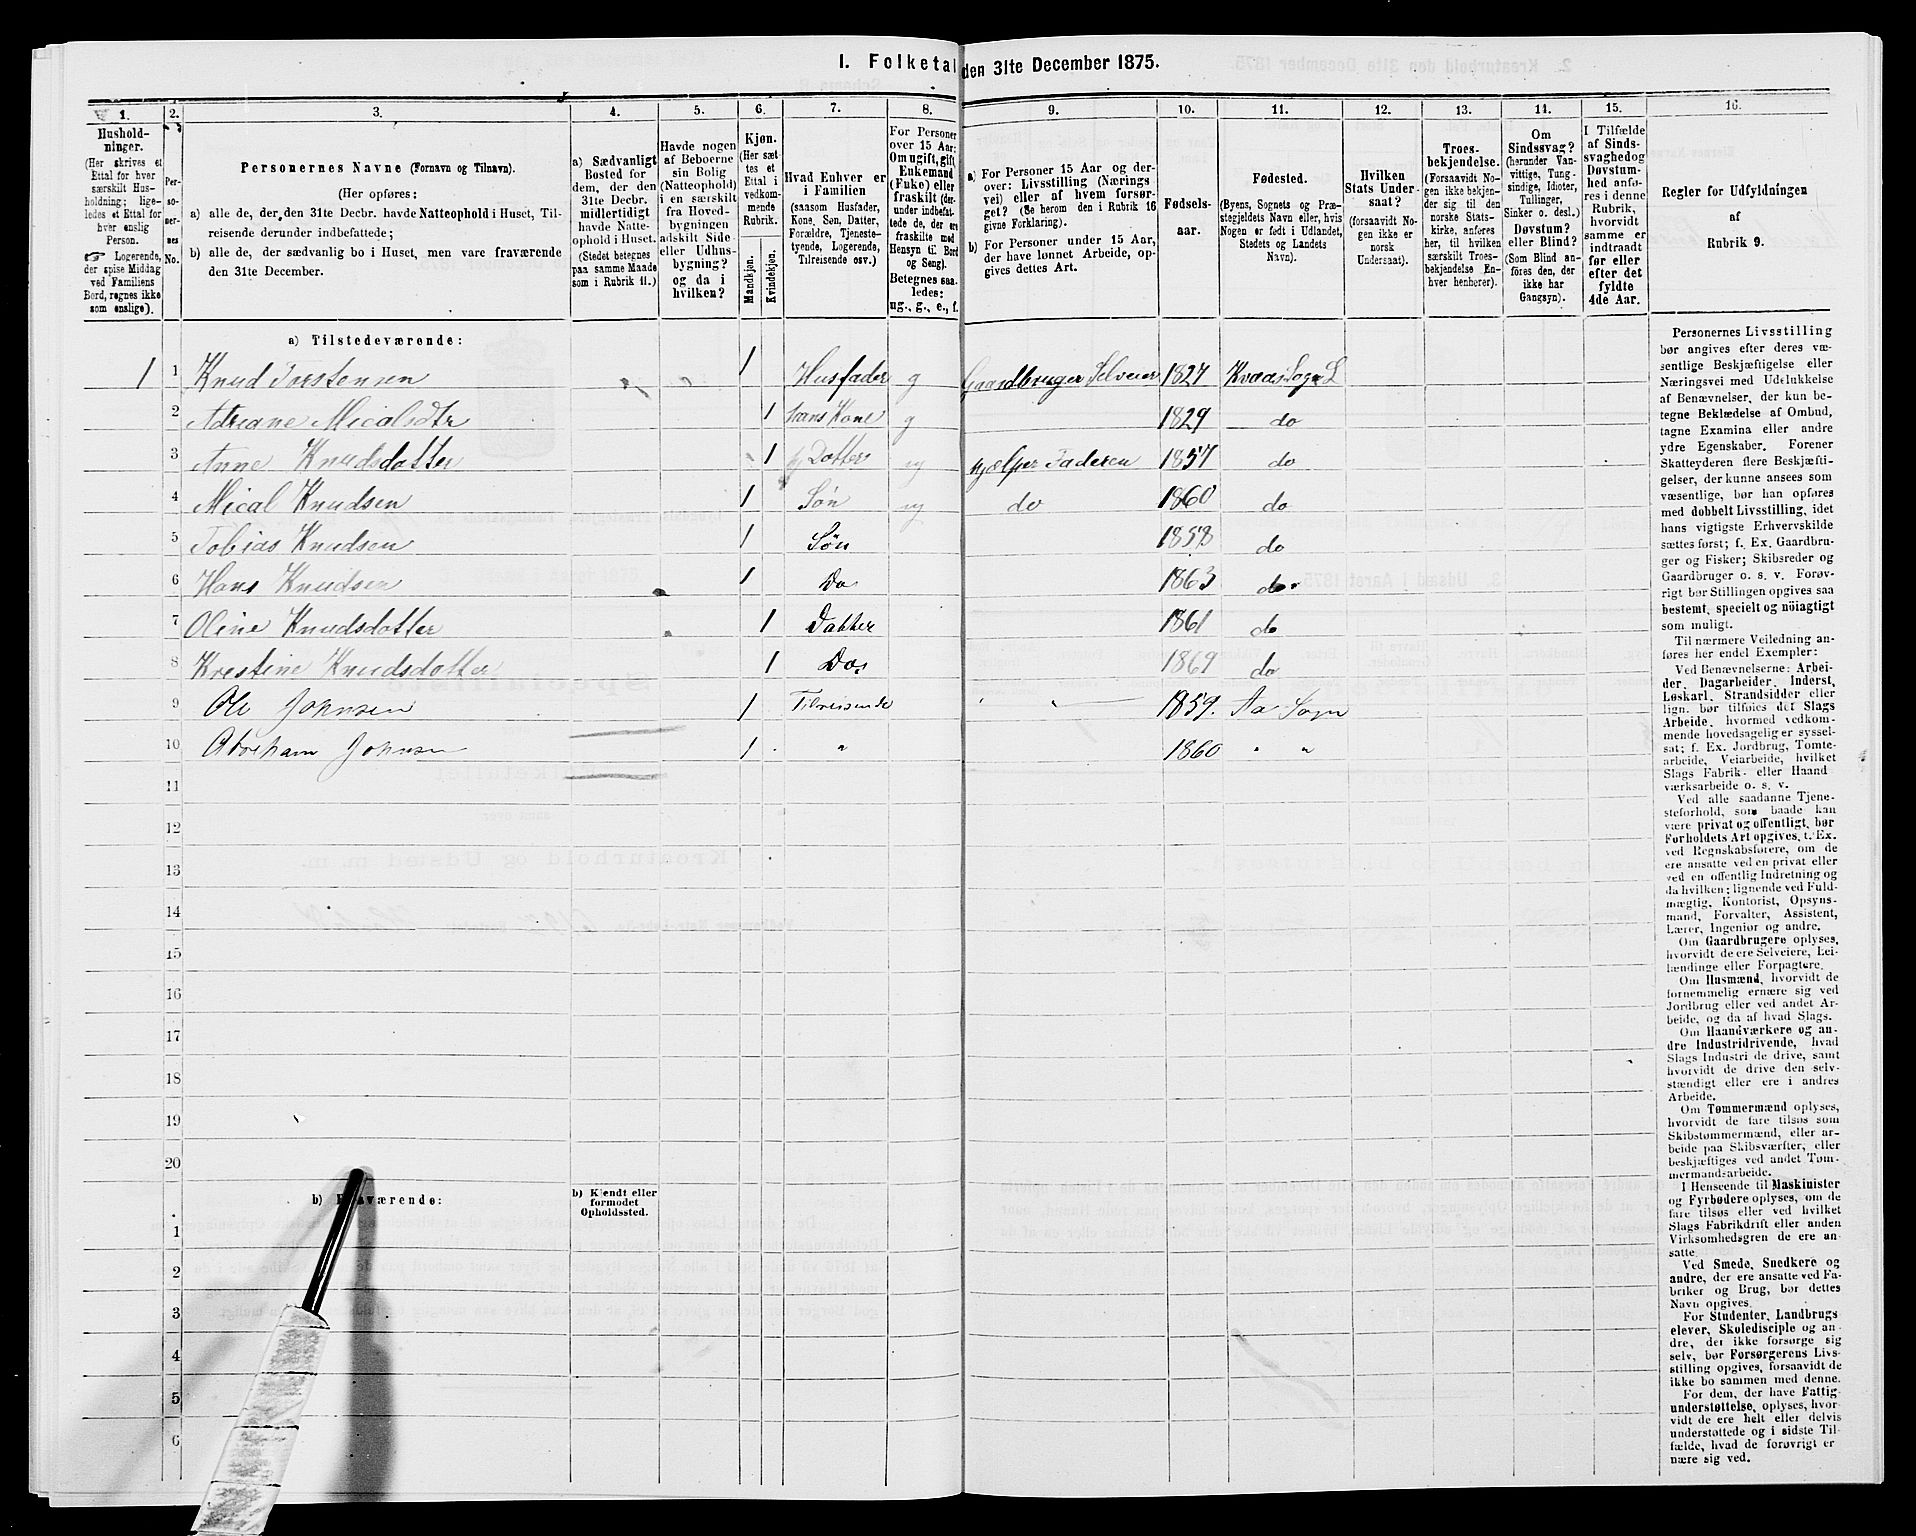 I. Folketal den 31te December 1875.
1. 2. 3. 4. 5. 6. 7. 8. 9. 10. 11. 12. 13. 14. 15. 16.
Husholdninger.
(Her skrives et
Ettal for hver
særskilt Husholdning; ligeledes et Ettal for
hver enslig
Person.
Logerende,
der spise Middag
ved Familiens
Bord, regnes ikke
som enslige).
Personernes No.
Personernes Navne (Fornavn og Tilnavn).
(Her opføres:
a) alle de, der den 31te Decbr. havde Natteophold i Huset, Tilreisende derunder indbefattede;
b) alle de, der sædvanlig bo i Huset, men vare fraværende
den 31te December.
a) Sædvanligt
Bosted for
dem, der den
31te Decbr.
midlertidigt
havde Natteophold i Huset.
(Stedet betegnes
paa samme Maade
som i Rubrik 11.)
Havde nogen
af Beboerne
sin Bolig
(Natteophold)
i en særskilt
fra Hovedbygningen
adskilt Side- eller Udhusbygning?
og da i
hvilken?
Kjøn.
(Her sættes et
Ettal i
vedkommende
Rubrik.
Mandkjøn.
Kvindekjøn.
Hvad Enhver er
i Familien
(saasom Husfader,
Kone, Søn, Datter,
Forældre, Tjenestetyende, Logerende,
Tilreisende osv.)
For Personer
over 15 Aar:
Om ugift, gift,
Enkemand
(Enke) eller
fraskilt (derunder indbefattede de, der ere
fraskilte med
Hensyn til Bord
og Seng).
Betegnes saaledes:
ug., g., e., f.
a) For Personer 15 Aar og derover: Livsstilling (Næringsvei) eller af hvem forsørget? (Se herom den i Rubrik 16
givne Forklaring).
b) For Personer under 15 Aar,
der have lønnet Arbeide, opgives dettes Art.
Fødselsaar.
Fødested.
(Byens, Sognets og Præstegjeldets Navn eller, hvis
Nogen er født i Udlandet,
Stedets og Landets
Navn).
Hvilken
Stats Undersaat?
(forsaavidt Nogen ikke er
norsk
Undersaat).
Troesbekjendelse.
(Forsaavidt Nogen ikke bekjender sig til den
norske Statskirke, anføres
her, til hvilken
særskilt Troesbekjendelse Enhver henhører).
Om
Sindssvag?
(herunder Vanvittige, Tungsindige, Idioter,
Tullinger,
Sinker o. desl.)
Døvstum?
eller Blind?
(Som Blind anføres den, der
ikke har
Gangsyn).
I Tilfælde
af Sindssvaghed og
Døvstumhed anføres i denne
Rubrik,
hvorvidt
samme er
indtraadt
før eller
efter det
fyldte
4de Aar.
Regler for Udfyldningen
af
Rubrik 9.
a) Tilstedeværende:
1 1 Knud Torstensen 1 Husfader g Gaardbruger Selveier 1827 Kvaas Sogn L
2 Adriane Micalsdtr 1 hans Kone g 1829 do
3 Anne Knudsdotter 1 Dotter ug Hjælper Faderen 1857 do
4 Mical Knudsen 1 Søn ug do 1860 do
5 Tobias Knudsen 1 Søn 1858 do
6 Hans Knudsen 1 Do 1863 do
7 Oline Knudsdotter 1 Datter 1861 do
8 Krestine Knudsdotter 1 Do 1869 do
9 Ole Johnsen 1 Tilreisende 1859. Aa Sogn
10 Abraham Johnsen 1 " 1860 " "
11
12
13
14
15
16
17
18
19
20
b) Fraværende:
b) Kjendt eller
formodet
Opholdssted.
1
2
3
4
5
6
Personernes Livsstilling
bør angives efter deres væsentlige Beskjæftigelse eller
Næringsvei med Udelukkelse
af Benævnelser, der kun betegne Beklædelse af Ombud,
tagne Examina eller andre
ydre Egenskaber. Forener
Skatteyderen flere Beskjæftigelser, der kunne ansees som
væsentlige, bør han opføres
med dobbelt Livsstilling, idet
hans vigtigste Erhvervskilde
sættes først; f. Ex. Gaardbruger og Fisker; Skibsreder og
Gaardbruger o. s. v. Forøvrigt bør Stillingen opgives saa
bestemt, specielt og nöiagtigt
som muligt.
Til nærmere Veiledning anføres her endel Exempler:
Ved Benævnelserne: Arbeider, Dagarbeider, Inderst,
Løskarl, Strandsidder eller
lign. bør tilføies det Slags
Arbeide, hvormed vedkommende hovedsagelig er sysselsat; f. Ex. Jordbrug, Tomtearbeide, Veiarbeide, hvilket
Slags Fabrik- eller Haandværksarbeide o. s. v.
Ved alle saadanne Tjenesteforhold, som baade kan
være privat og offentligt, bør
Forholdets Art opgives, t. Ex.
ved Regnskabsførere, om de
ere ansatte ved en privat eller
ved en offentlig Indretning og
da hvilken; lignende ved Fuldmægtig, Kontorist, Opsynsmand, Forvalter, Assistent,
Lærer, Ingeniør og andre.
Om Gaardbrugere oplyses,
hvorvidt de ere Selveiere, Leilændinge eller Forpagtere.
Om Husmænd, hvorvidt de
fornemmelig ernære sig ved
Jordbrug eller ved andet Arbeide, og da af hvad Slags.
Om Haandværkere og andre Industridrivende, hvad
Slags Industri de drive, samt
hvorvidt de drive den selvstændigt eller ere i andres
Arbeide.
Om Tømmermænd oplyses,
hvorvidt de fare tilsøs som
Skibstømmermænd, eller arbeide paa Skibsværfter, eller
beskjæftiges ved andet Tømmermandsarbeide.
I Henseende til Maskinister
og Fyrbødere oplyses, om de
fare tilsøs eller ved hvilket
Slags Fabrikdrift eller anden
Virksomhedsgren de ere ansatte.
Ved Smede, Snedkere og
andre, der ere ansatte ved Fabriker og Brug, bør dettes
Navn opgives.
For Studenter, Landbrugselever, Skoledisciple og andre, der ikke forsørge sig
selv, bør Forsørgerens Livsstilling opgives, forsaavidt de
ikke bo sammen med denne.
For dem, der have Fattigunderstøttelse, oplyses, hvorvidt de ere helt eller delvis
understøttede og i sidste Tilfælde, hvad de forøvrigt ernære sig ved.